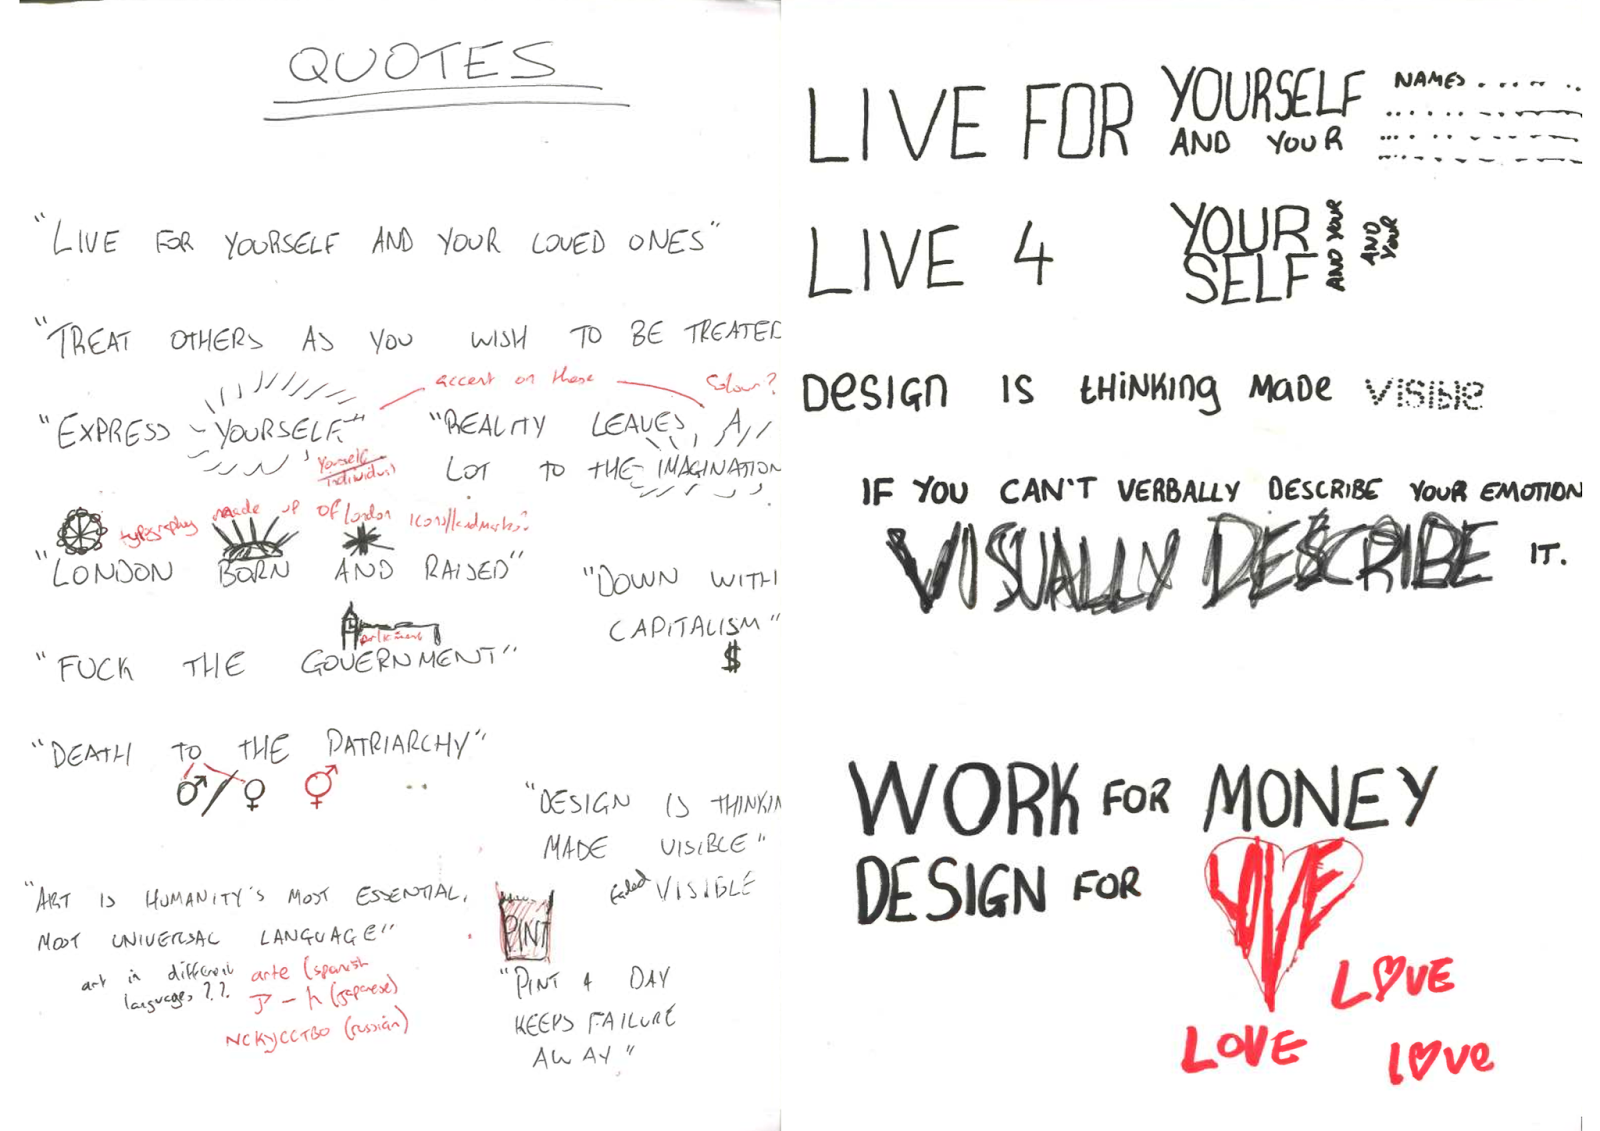 QUOTES
"LIVE FOR YOURSELF AND YOUR LOVED ONES"
"TREAT OTHERS AS YOU WISH TO BE TREATED
accent on these
Colour?
"EXPRESS YOURSELF"
yourself
individual
"REALITY LEAVES A
LOT TO THE IMAGINATION
typography made up of london icons/landmarks?
"LONDON BORN AND RAISED"
"DOWN WITH
CAPITALISM"
$
parliament
"FUCK THE GOVERNMENT"
"DEATH TO THE PATRIARCHY"
♂/♀ ⚥
"DESIGN IS THINKIN
MADE VISIBLE"
faded VISIBLE
"ART IS HUMANITY'S MOST ESSENTIAL,
MOST UNIVERSAL LANGUAGE"
art in different
languages??
arte (spanish
アート (japanese)
NCKYCCTBO (russian)
PINT
"PINT A DAY
KEEPS FAILURE
AWAY"
LIVE FOR YOURSELF
AND YOUR
NAMES
LIVE 4 YOUR
SELF
AND YOUR
AND
YOUR
DESIGN IS tHiNKiNg MADE VISIBLE
IF YOU CAN'T VERBALLY DESCRIBE YOUR EMOTION
VISUALLY DESCRIBE IT.
WORK FOR MONEY
DESIGN FOR LOVE
LOVE
LOVE
love